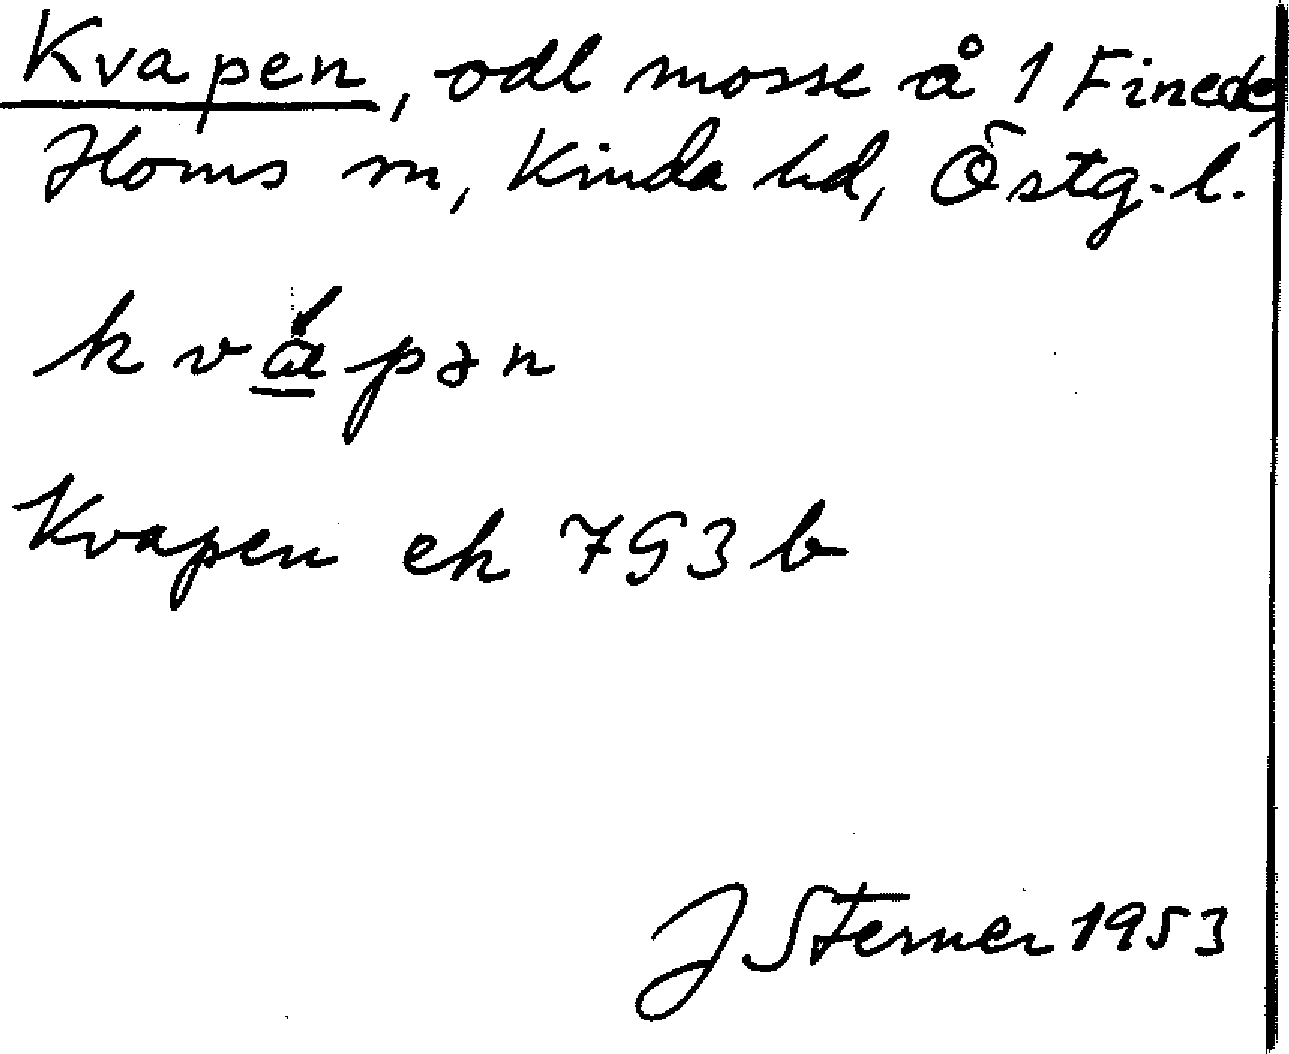 Kvapen, odl mosse å 1 Finede,
Horns sn, Kinda hd, Östg.l.
kvápən
Kvapen ek 7G3b
J Sterner 1953